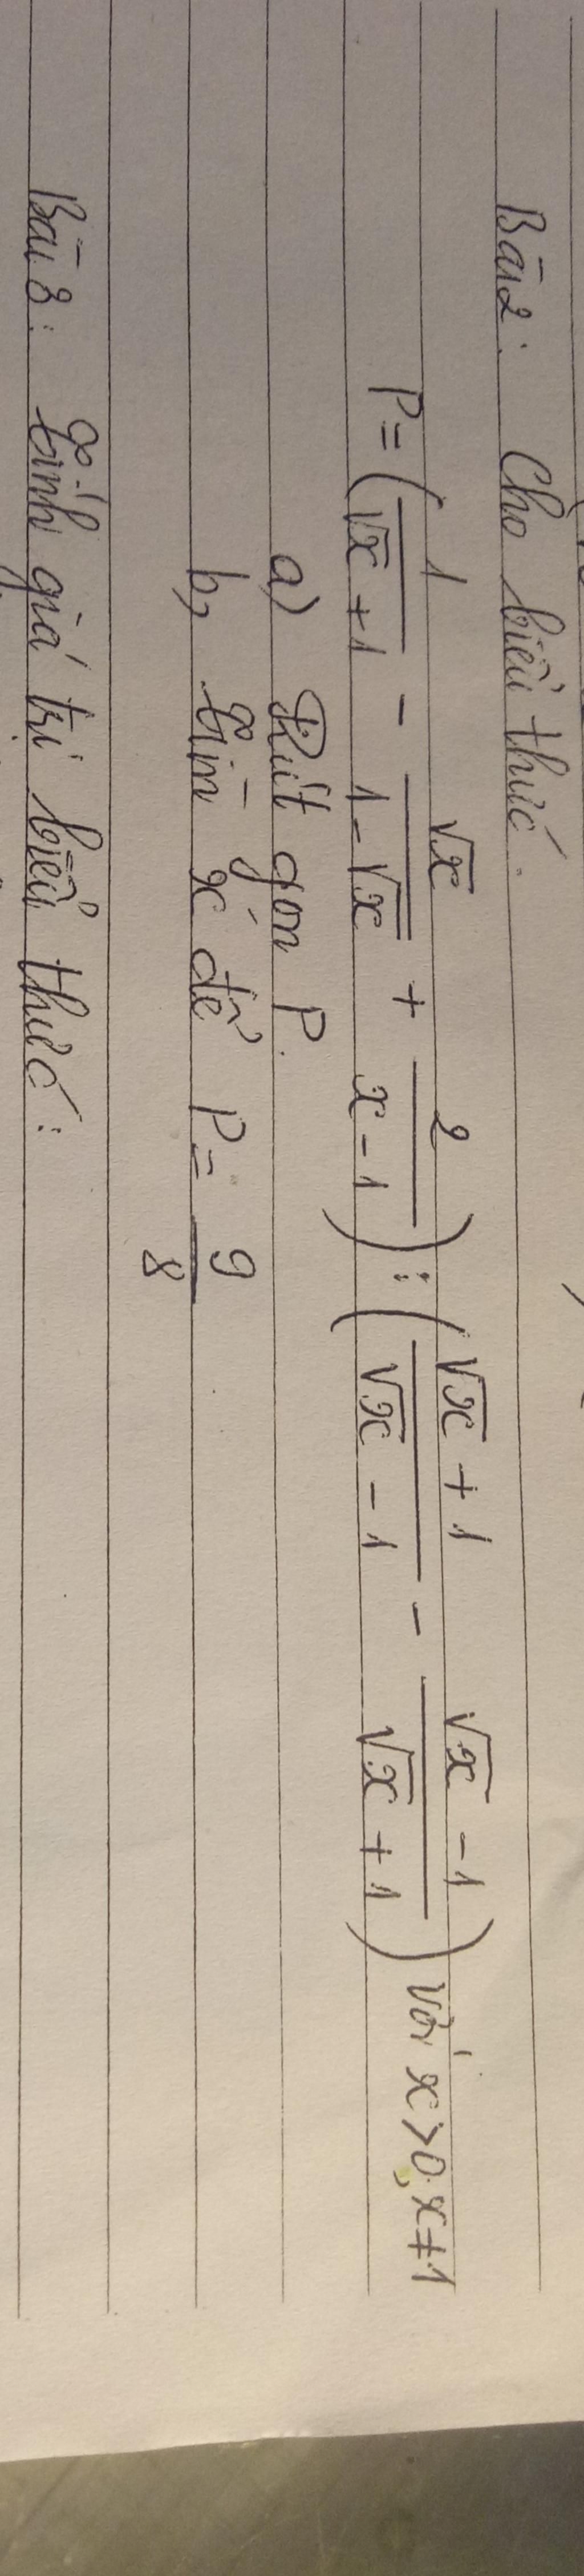 Bài 2: Cho biểu thức.
P = ( 1/(√x + 1) - √x/(1 - √x) + 2/(x - 1) ) : ( (√x + 1)/(√x - 1) - (√x - 1)/(√x + 1) ) với x > 0, x ≠ 1
a) Rút gọn P.
b, Tìm x để P = 9/8
Bài 3: Tính giá trị biểu thức: